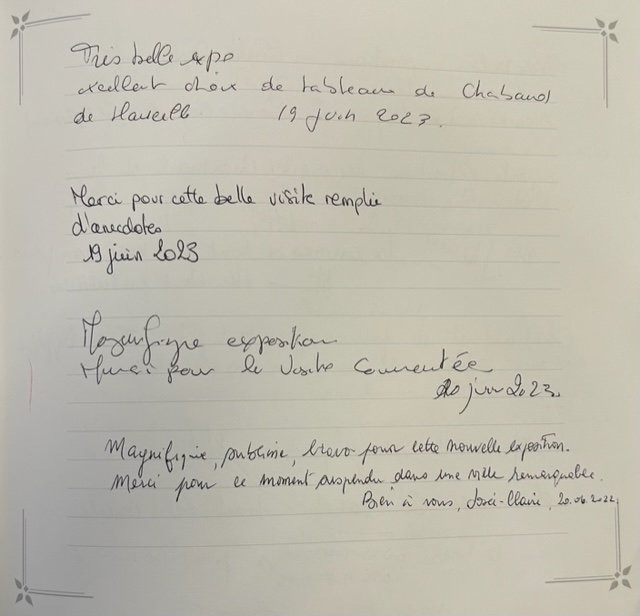 Très belle expo
excellent choix de tableaux de Chabaud
de Marseille 19 juin 2023.
Merci pour cette belle visite remplie
d'anecdotes
19 juin 2023
Magnifique exposition
Merci pour la visite commentée
20 juin 2023.
Magnifique, sublime, bravo pour cette nouvelle exposition.
Merci pour ce moment suspendu dans une ville remarquable.
Bien à vous, 20.06.2022